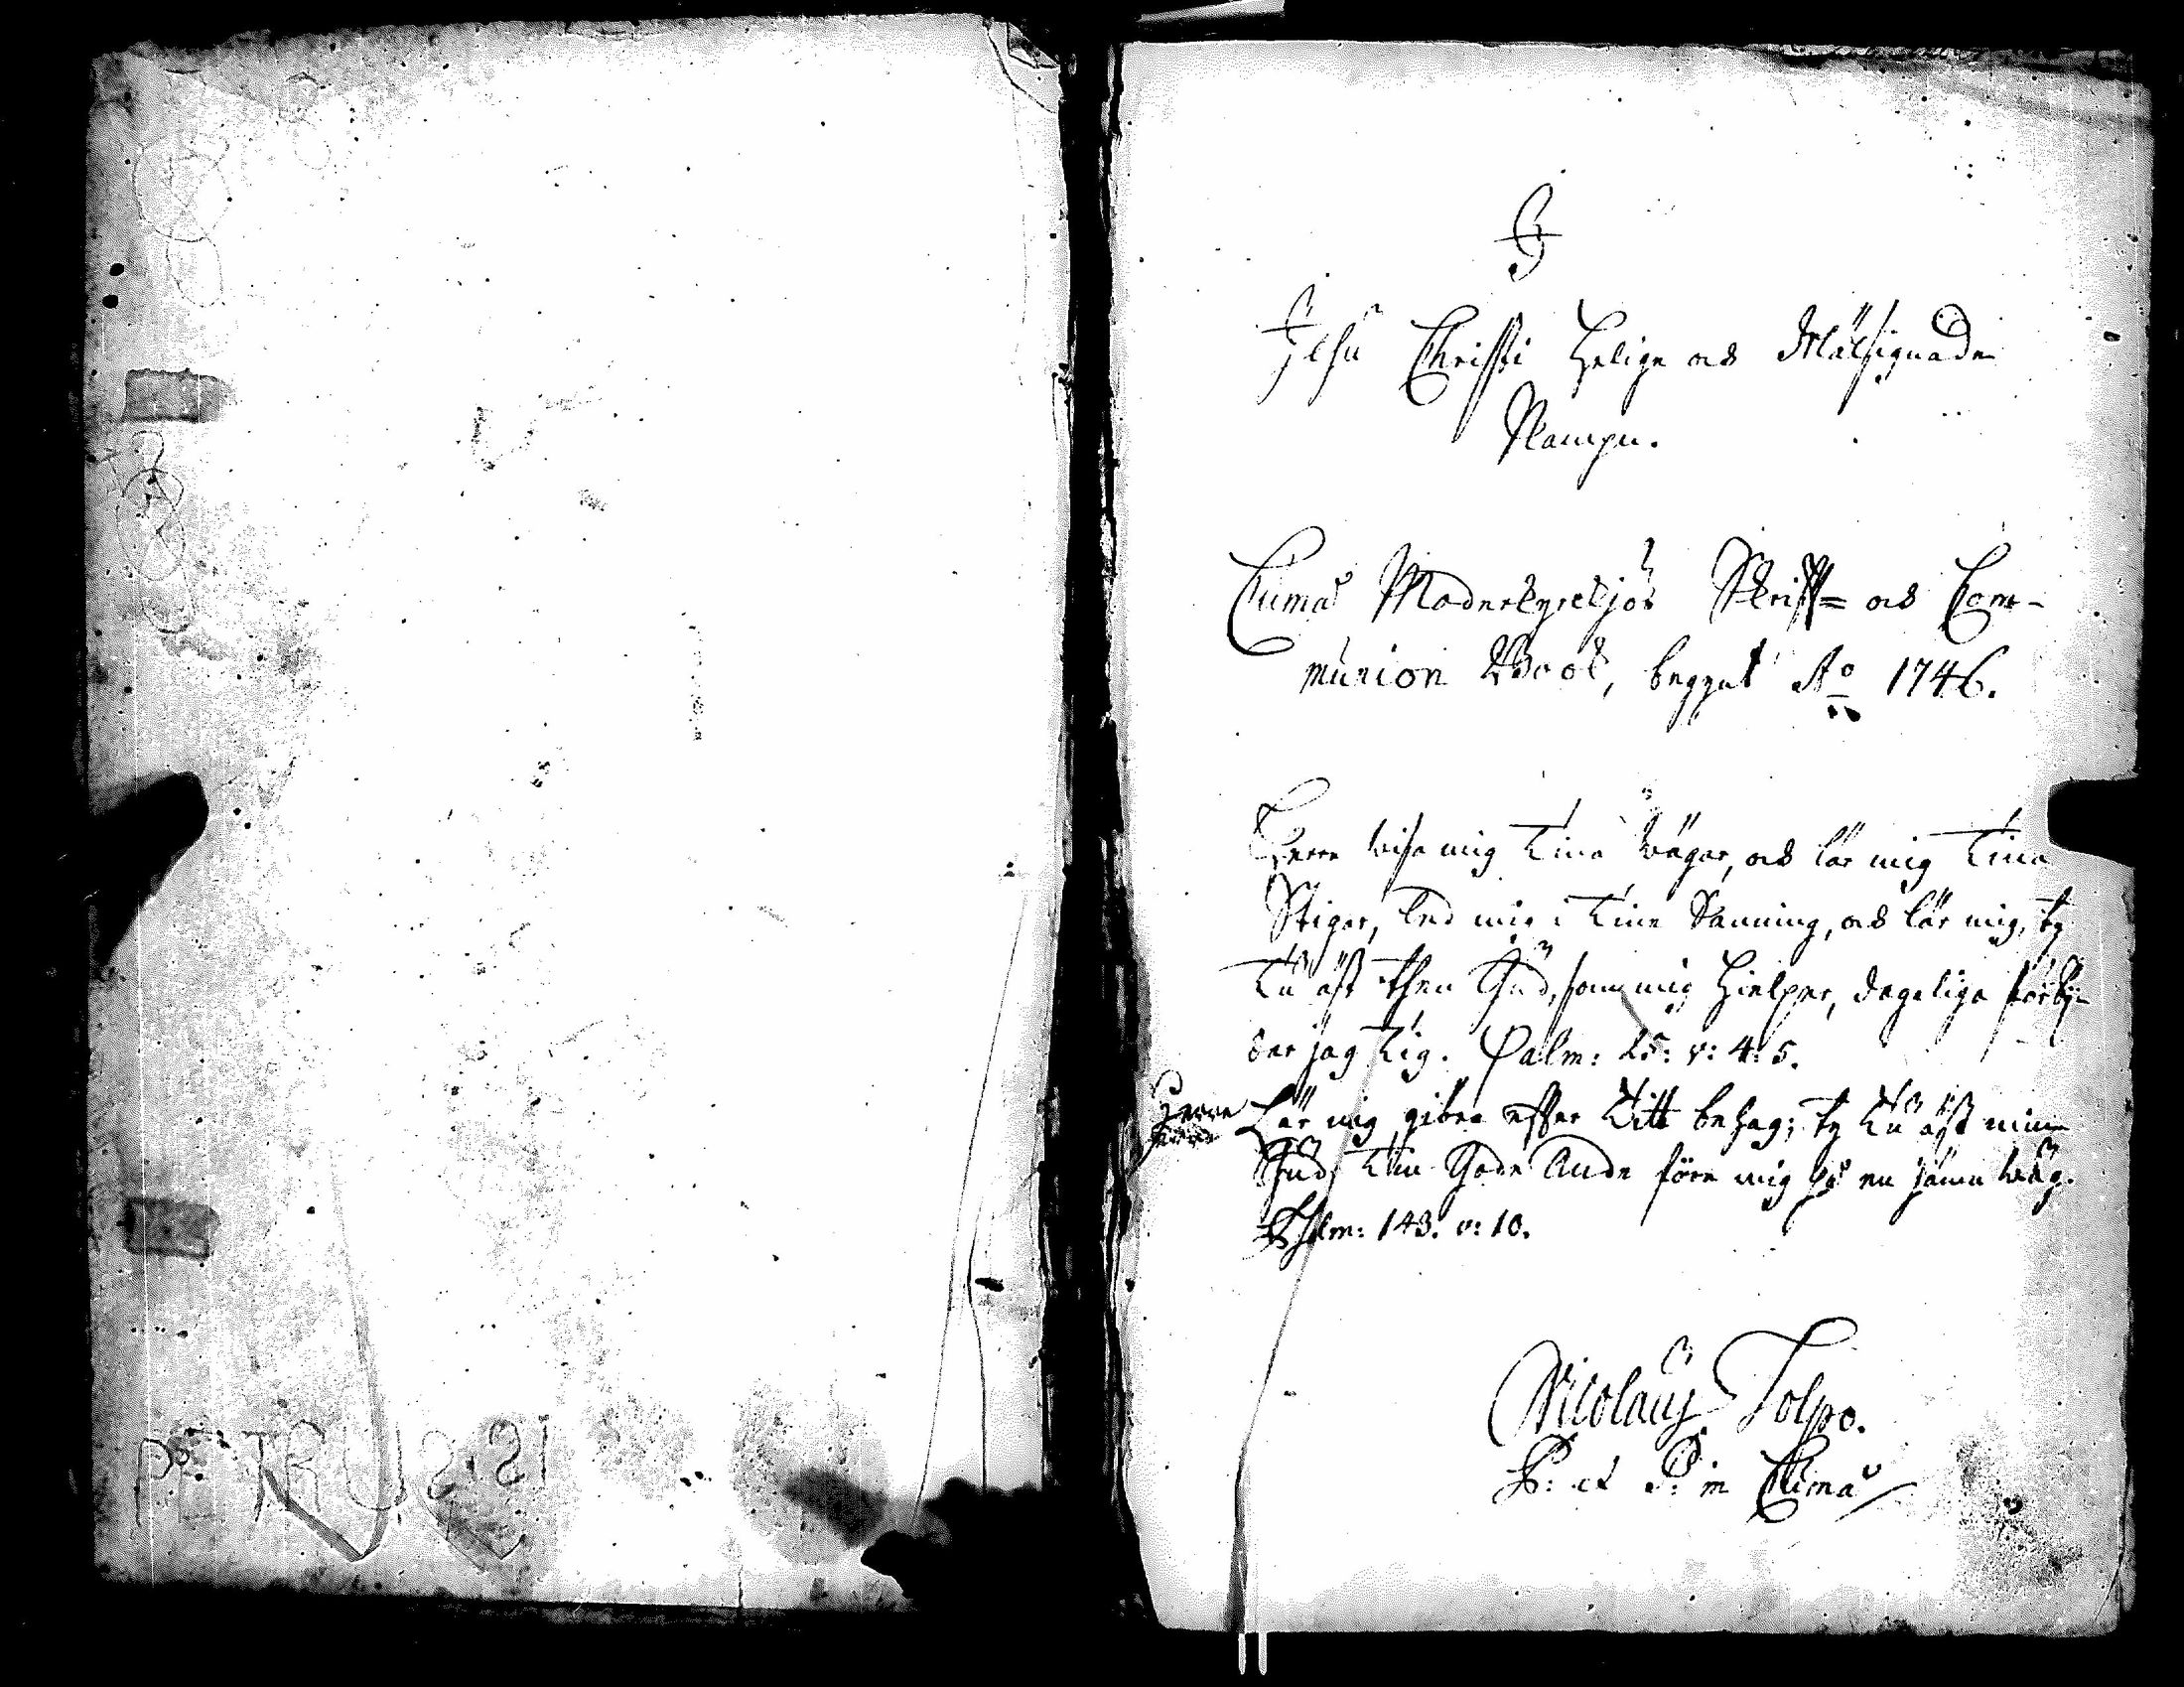 PETRUS SI
I
Jesu Christi Helige och Wälsignade
Nampn.
Cumå Moderkyrckjos Skrifft= och Com-
munion Book, begynt Ao 1746.
Herre wisa mig Tina wägar, och lär mig Tina
Stigar, led mig i Tine Sanning, och lär mig, ty
Tu äst then Gud, som mig hielper, dageliga förbij-
dar jag Tig. Psalm: 25: v: 4: 5.
Herre
Lär mig göra effter Titt behag; ty Tu äst min
Gud, Tin Gode Ande före mig på en jämn wäg.
Psalm: 143. v: 10.
Nicolaus Tolpo.
P: et P: in Cumå